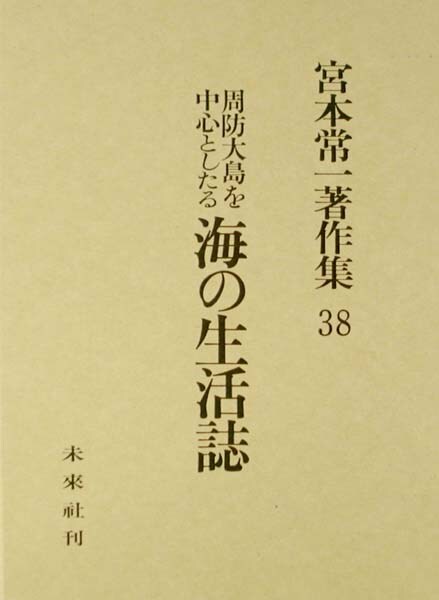 宮本常一著作集 38
周防大島を
中心としたる
海の生活誌
未來社刊